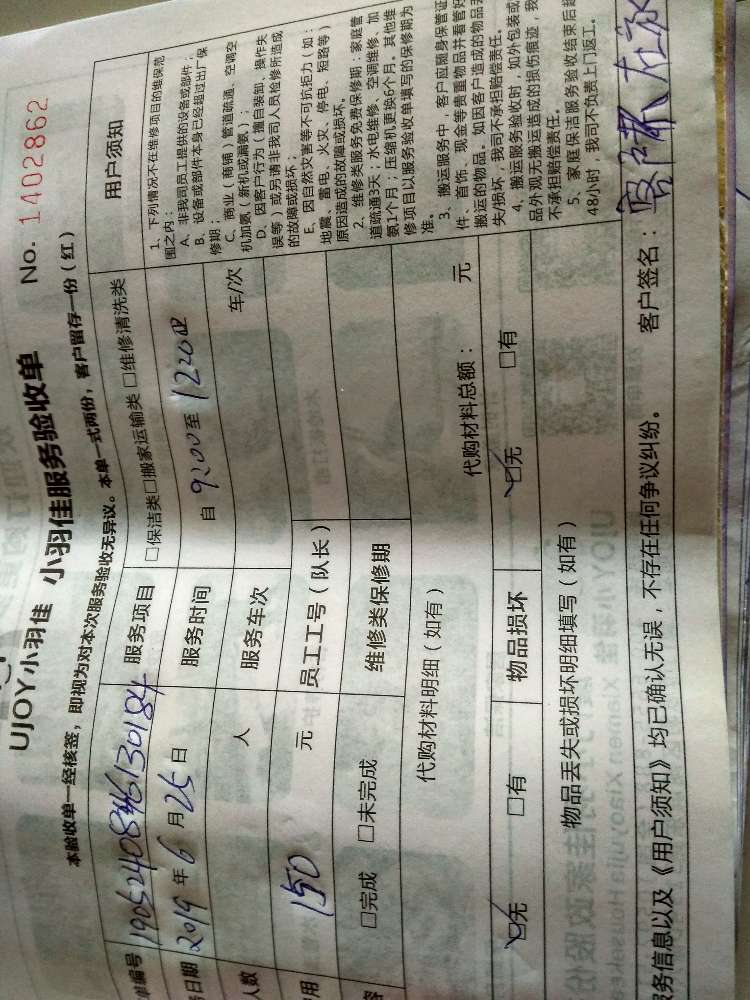 UJOY小羽佳 小羽佳服务验收单 No. 1402862
本验收单一经核签，即视为对本次服务验收无异议。本单一式两份，客户留存一份（红）
单编号 190524084613 0184
服务项目 □保洁类□搬家运输类 □维修清洗类
务日期 2019 年 6 月 25 日
服务时间 自 9:00 至 12:00
人数 人
服务车次 车/次
用 150 元
员工工号（队长）
容 □完成 □未完成
维修类保修期
代购材料明细（如有）
代购材料总额： 元
□无 □有
物品损坏 □无 □有
物品丢失或损坏明细填写（如有）
用户须知
1、下列情况不在维修项目的维保范
围之内：
A、非我司员工提供的设备或部件；
B、设备或部件本身已经超过出厂保
修期；
C、商业（商铺）管道疏通、空调空
机加氨（新机或漏氨）；
D、因客户行为（擅自装卸、操作失
误等）或另请非我司人员检修所造成
的故障或损坏；
E、因自然灾害等不可抗拒力（如：
地震、蓄电、火灾、停电、短路等）
原因造成的故障或损坏。
2、维修类服务免费保修期：家庭管
道疏通3天；水电维修、空调维修、加
氨1个月；压缩机更换6个月。其他维
修项目以服务验收单填写的保修期为
准。
3、搬运服务中，客户应随身保管证
件、首饰、现金等贵重物品并看管好
搬运的物品。如因客户造成的物品丢
失/损坏，我司不承担赔偿责任。
4、搬运服务验收时，如外包装或
品外观无搬运造成的损伤痕迹，我
不承担赔偿责任。
5、家庭保洁服务验收结束后起
48小时，我司不负责上门返工。
务信息以及《用户须知》均已确认无误，不存在任何争议纠纷。 客户签名：